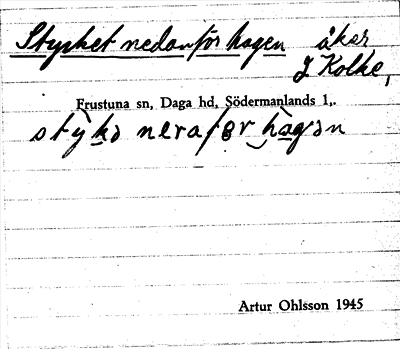 Stycket nedanför hagen åker,
J Kolke,
Frustuna sn, Daga hd, Södermanlands l,.
stỳkə nerafər hagən
Artur Ohlsson 1945